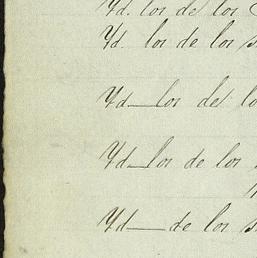 Yd. los de los
Yd. los de los
Yd— los de lo
Yd— los de los
Yd— de los